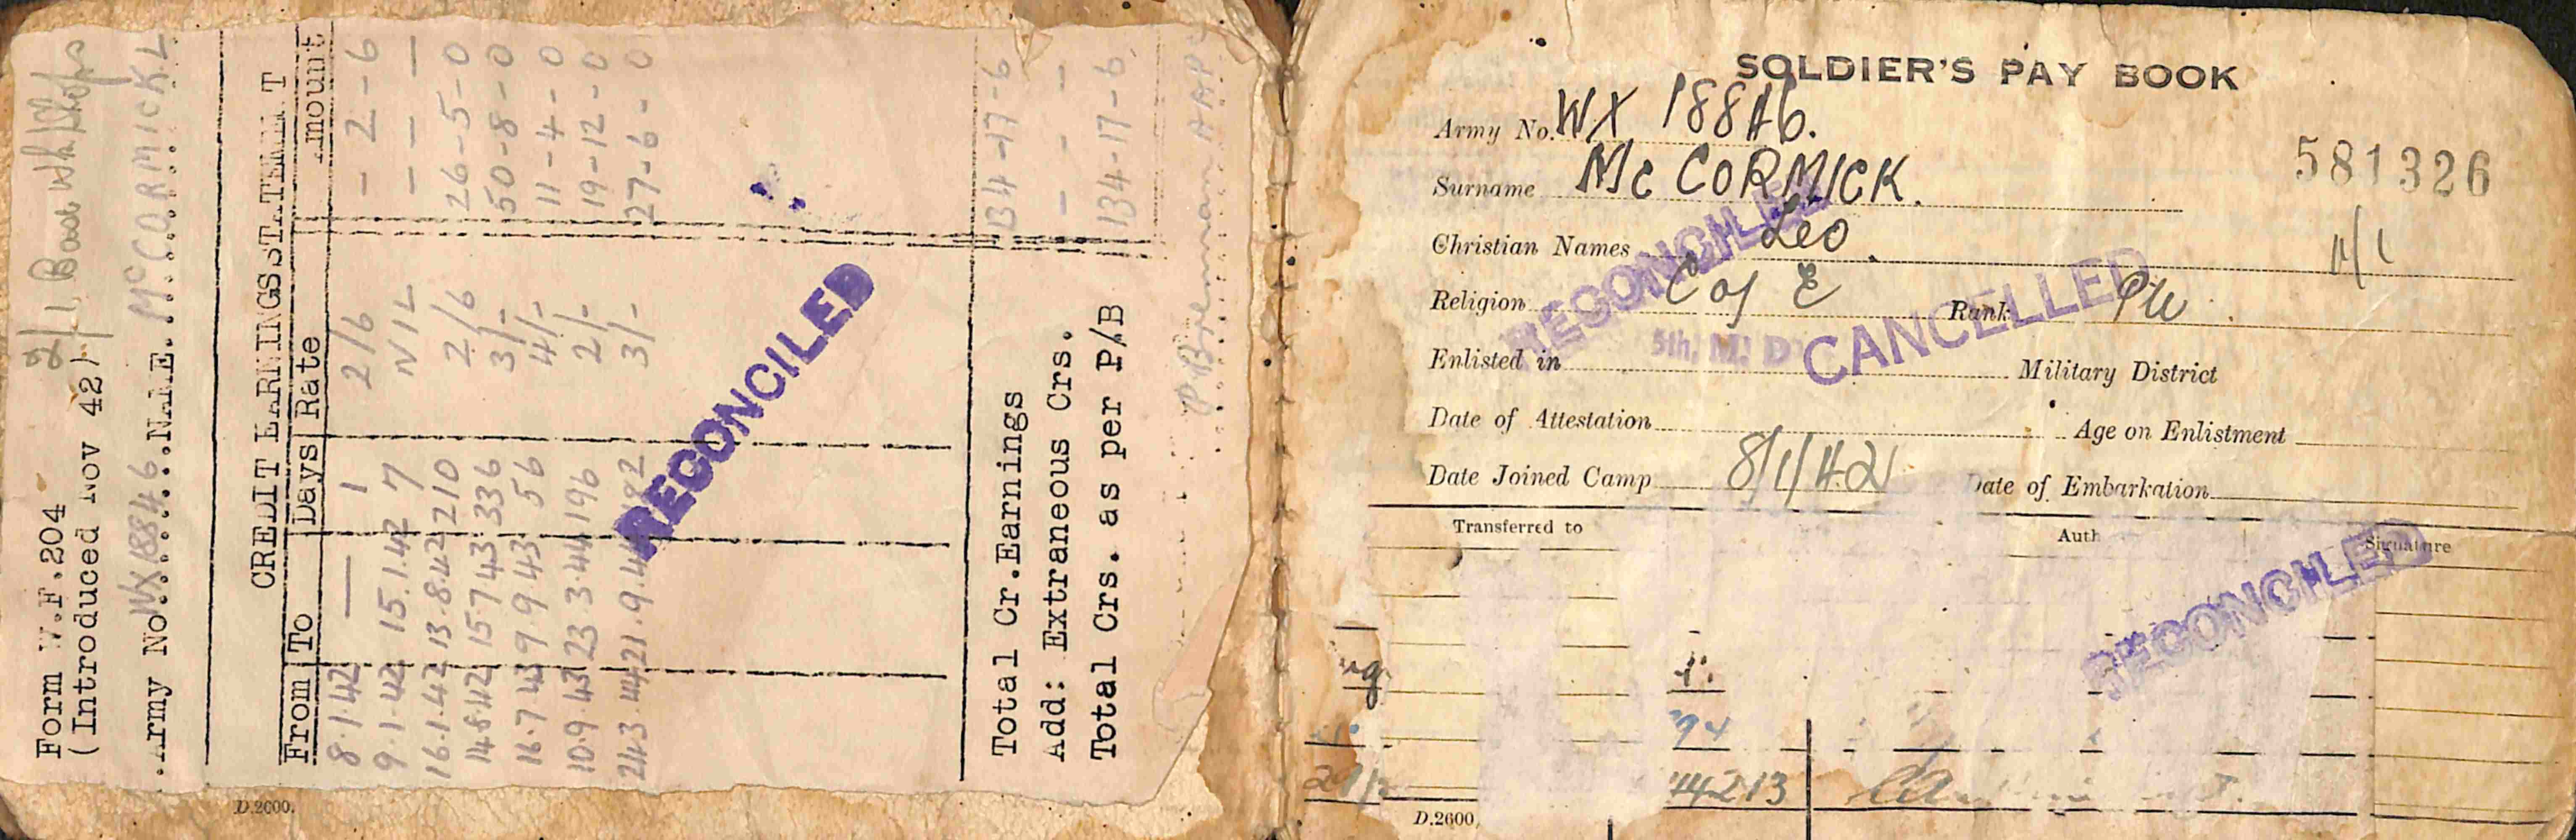 2/1 Base Wkshops
Form W.F.204
(Introduced Nov 42)
Army No. WX18846 NAME. McCORMICK L
CREDIT EARNINGS STATEMENT
From To Days Rate Amount
8.1.42 — 1 2/6 - 2 - 6
9.1.42 15.1.42 7 NIL - - -
16.1.42 13.8.42 210 2/6 26-5-0
14.8.42 15.7.43 336 3/- 50-8-0
16.7.43 9.9.43 56 4/- 11-4-0
10.9.43 23.3.44 196 2/- 19-12-0
24.3.44 21.9.44 182 3/- 27-6-0
RECONCILED
Total Cr.Earnings 134-17-6
Add: Extraneous Crs. - - -
Total Crs. as per P/B 134-17-6
D.2600.
SOLDIER'S PAY BOOK
Army No. WX 18846.
581326
Surname McCORMICK.
Christian Names Leo.
Religion C of E Rank Pte
RECONCILED
5th. M. D.
CANCELLED
Enlisted in Military District
Date of Attestation Age on Enlistment
Date Joined Camp 8/1/42 Date of Embarkation
Transferred to Auth Signature
RECONCILED
44213
D.2600